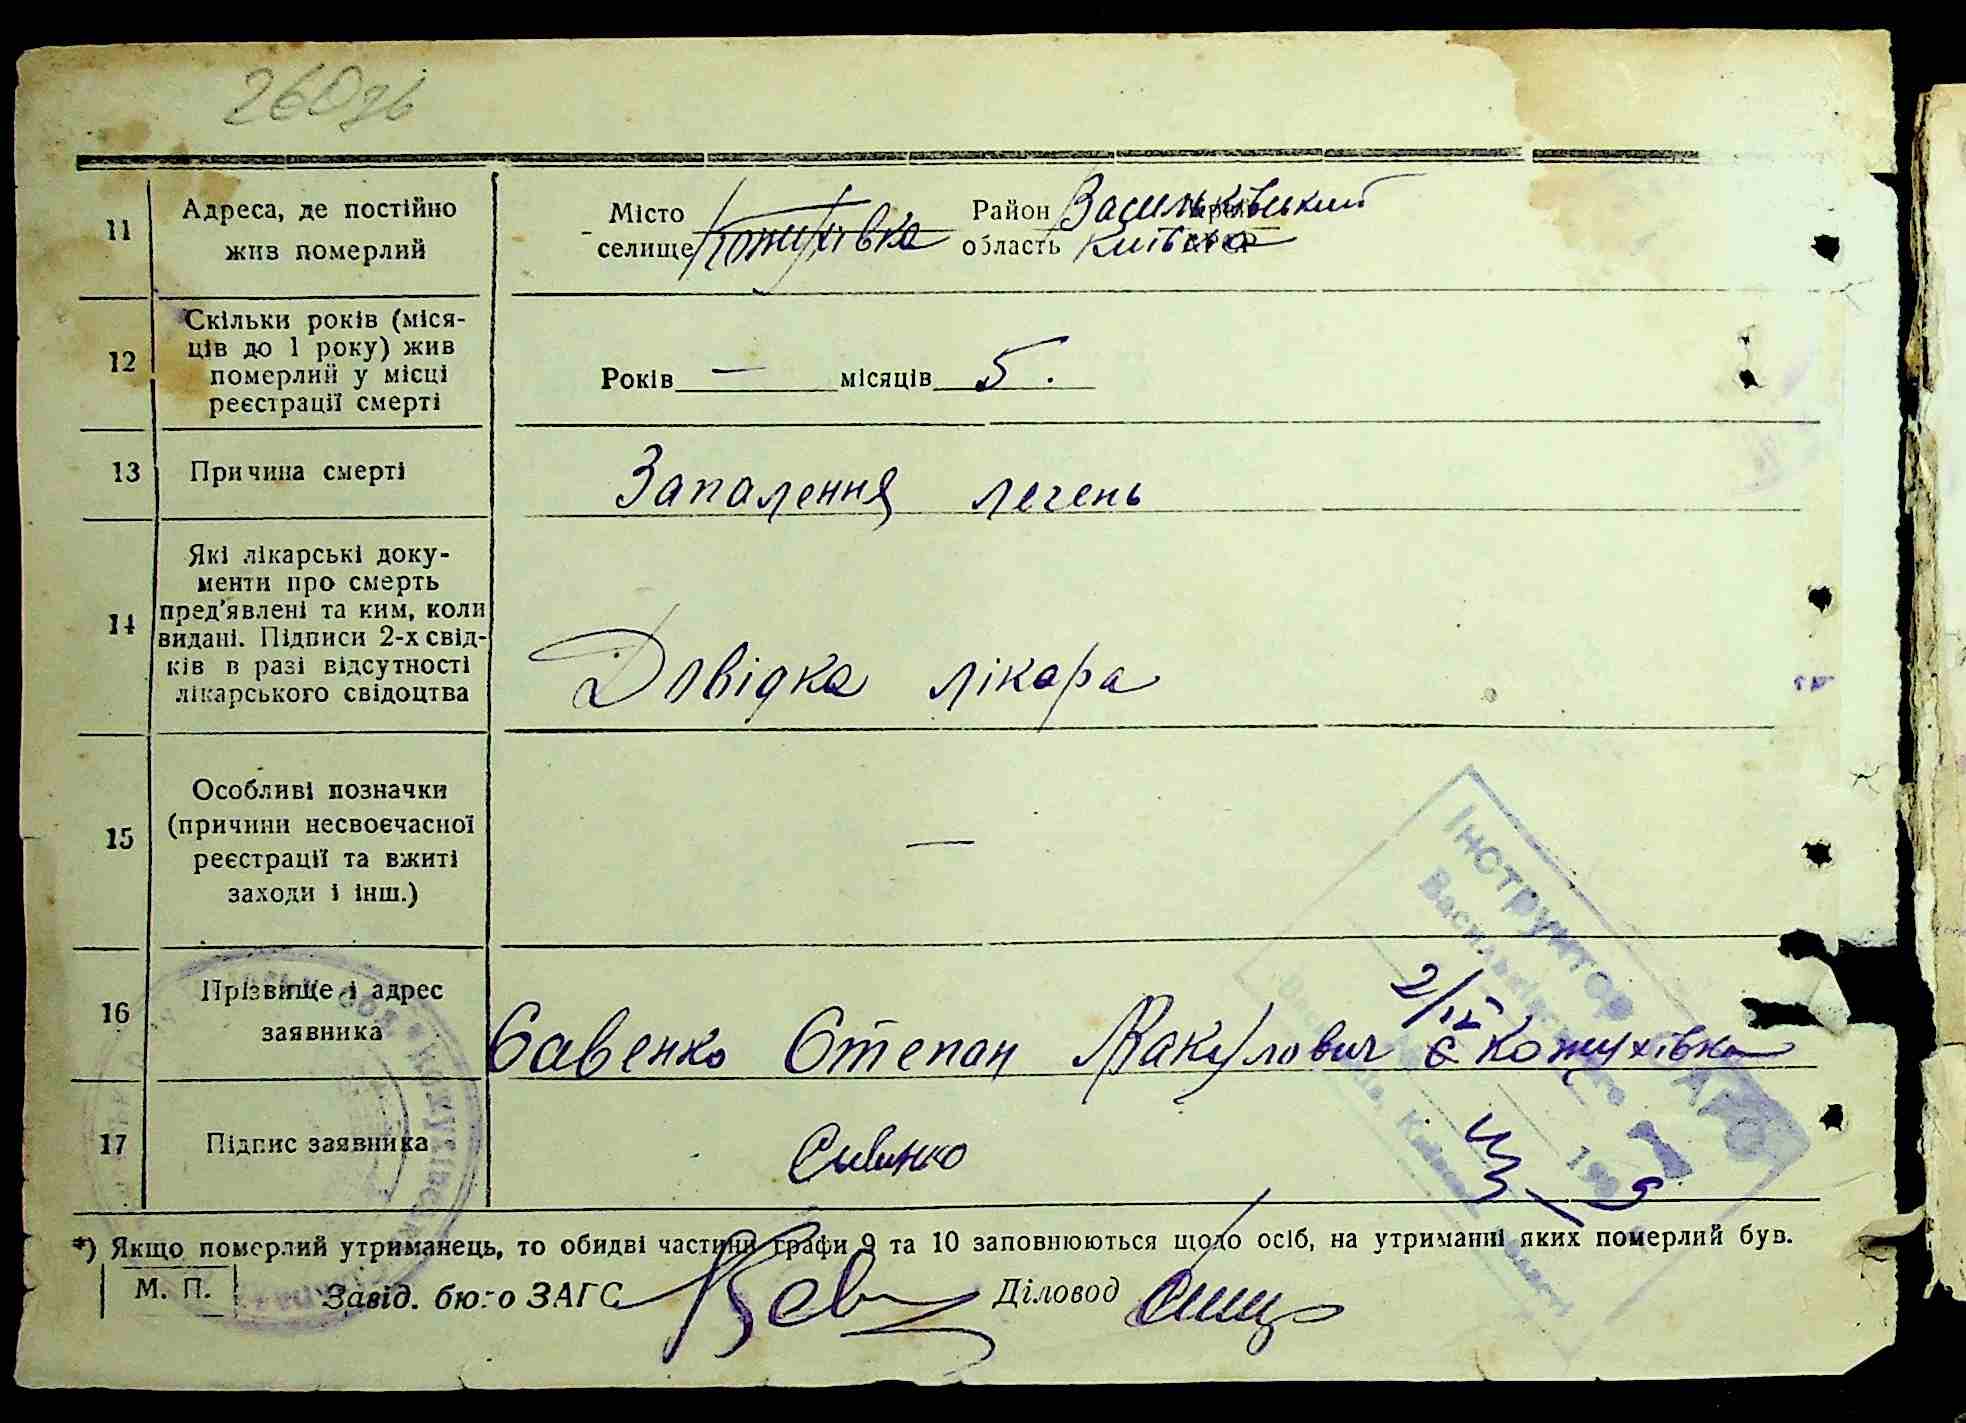 260зв
11 Адреса, де постійно жив померлий
Місто Кожухівка Район Васильківський
селище область Київська
12 Скільки років (міся-
ців до 1 року) жив
померлий у місці
реєстрації смерті
Років — місяців 5.
13 Причина смерті
Запалення легень
14 Які лікарські доку-
менти про смерть
пред'явлені та ким, коли
видані. Підписи 2-х свід-
ків в разі відсутності
лікарського свідоцтва
Довідка лікара
15 Особливі позначки
(причини несвоєчасної
реєстрації та вжиті
заходи і інш.)
—
Інструктор ЗАГС
Васильківського
16 Прізвище і адрес
заявника
2/IV
Савенко Степан Вакулович с Кожухівка
17 Підпис заявника
Савенко
*) Якщо померлий утриманець, то обидві частини графи 9 та 10 заповнюються щодо осіб, на утриманні яких померлий був.
М. П. Завід. бюро ЗАГС Діловод